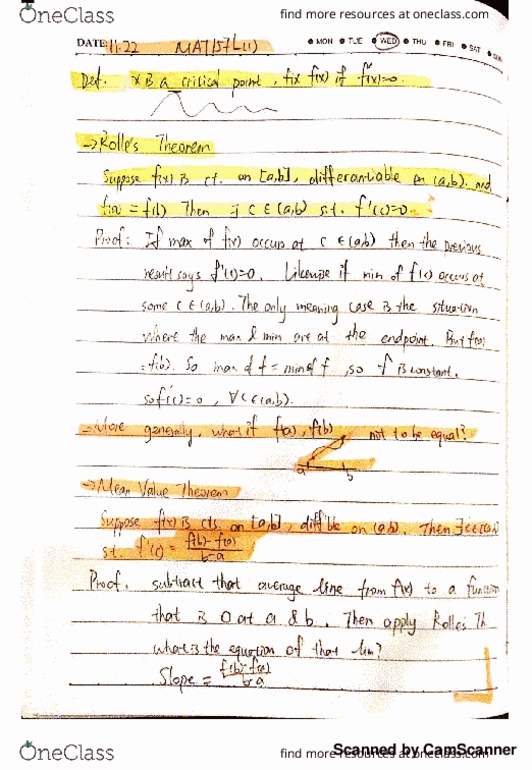 OneClass find more resources at oneclass.com
DATE: 11.22 MAT157L(1) MON TUE WED THU FRI SAT SUN
Def. x is a critical point, fix f(x) if f'(x)=0.
→Rolle's Theorem
Suppose f(x) is ct. on [a,b], differentiable on (a,b). and
f(a) = f(b) Then ∃ c ∈ (a,b) s.t. f'(c)=0.
Proof: If max of f(x) occurs at c ∈ (a,b) then the previous
result says f'(c)=0. Likewise if min of f(x) occurs at
some c ∈ (a,b). The only meaning case is the situation
where the max & min are at the endpoint. But f(a)
=f(b). So max of f = min of f, so f is constant.
so f'(c)=0, ∀ c ∈ (a,b).
→More generally, what if f(a), f(b) not to be equal?
a b
→Mean Value Theorem
Suppose f(x) is cts. on [a,b], diff'ble on (a,b). Then ∃ c∈(a,b)
s.t. f'(c) = f(b)-f(a) / b-a
Proof: subtract that average line from f(x) to a function
that is 0 at a & b. Then apply Rolle's Th
what is the equation of that lin?
Slope = f(b)-f(a) / b-a
OneClass find more resources at oneclass.com
Scanned by CamScanner